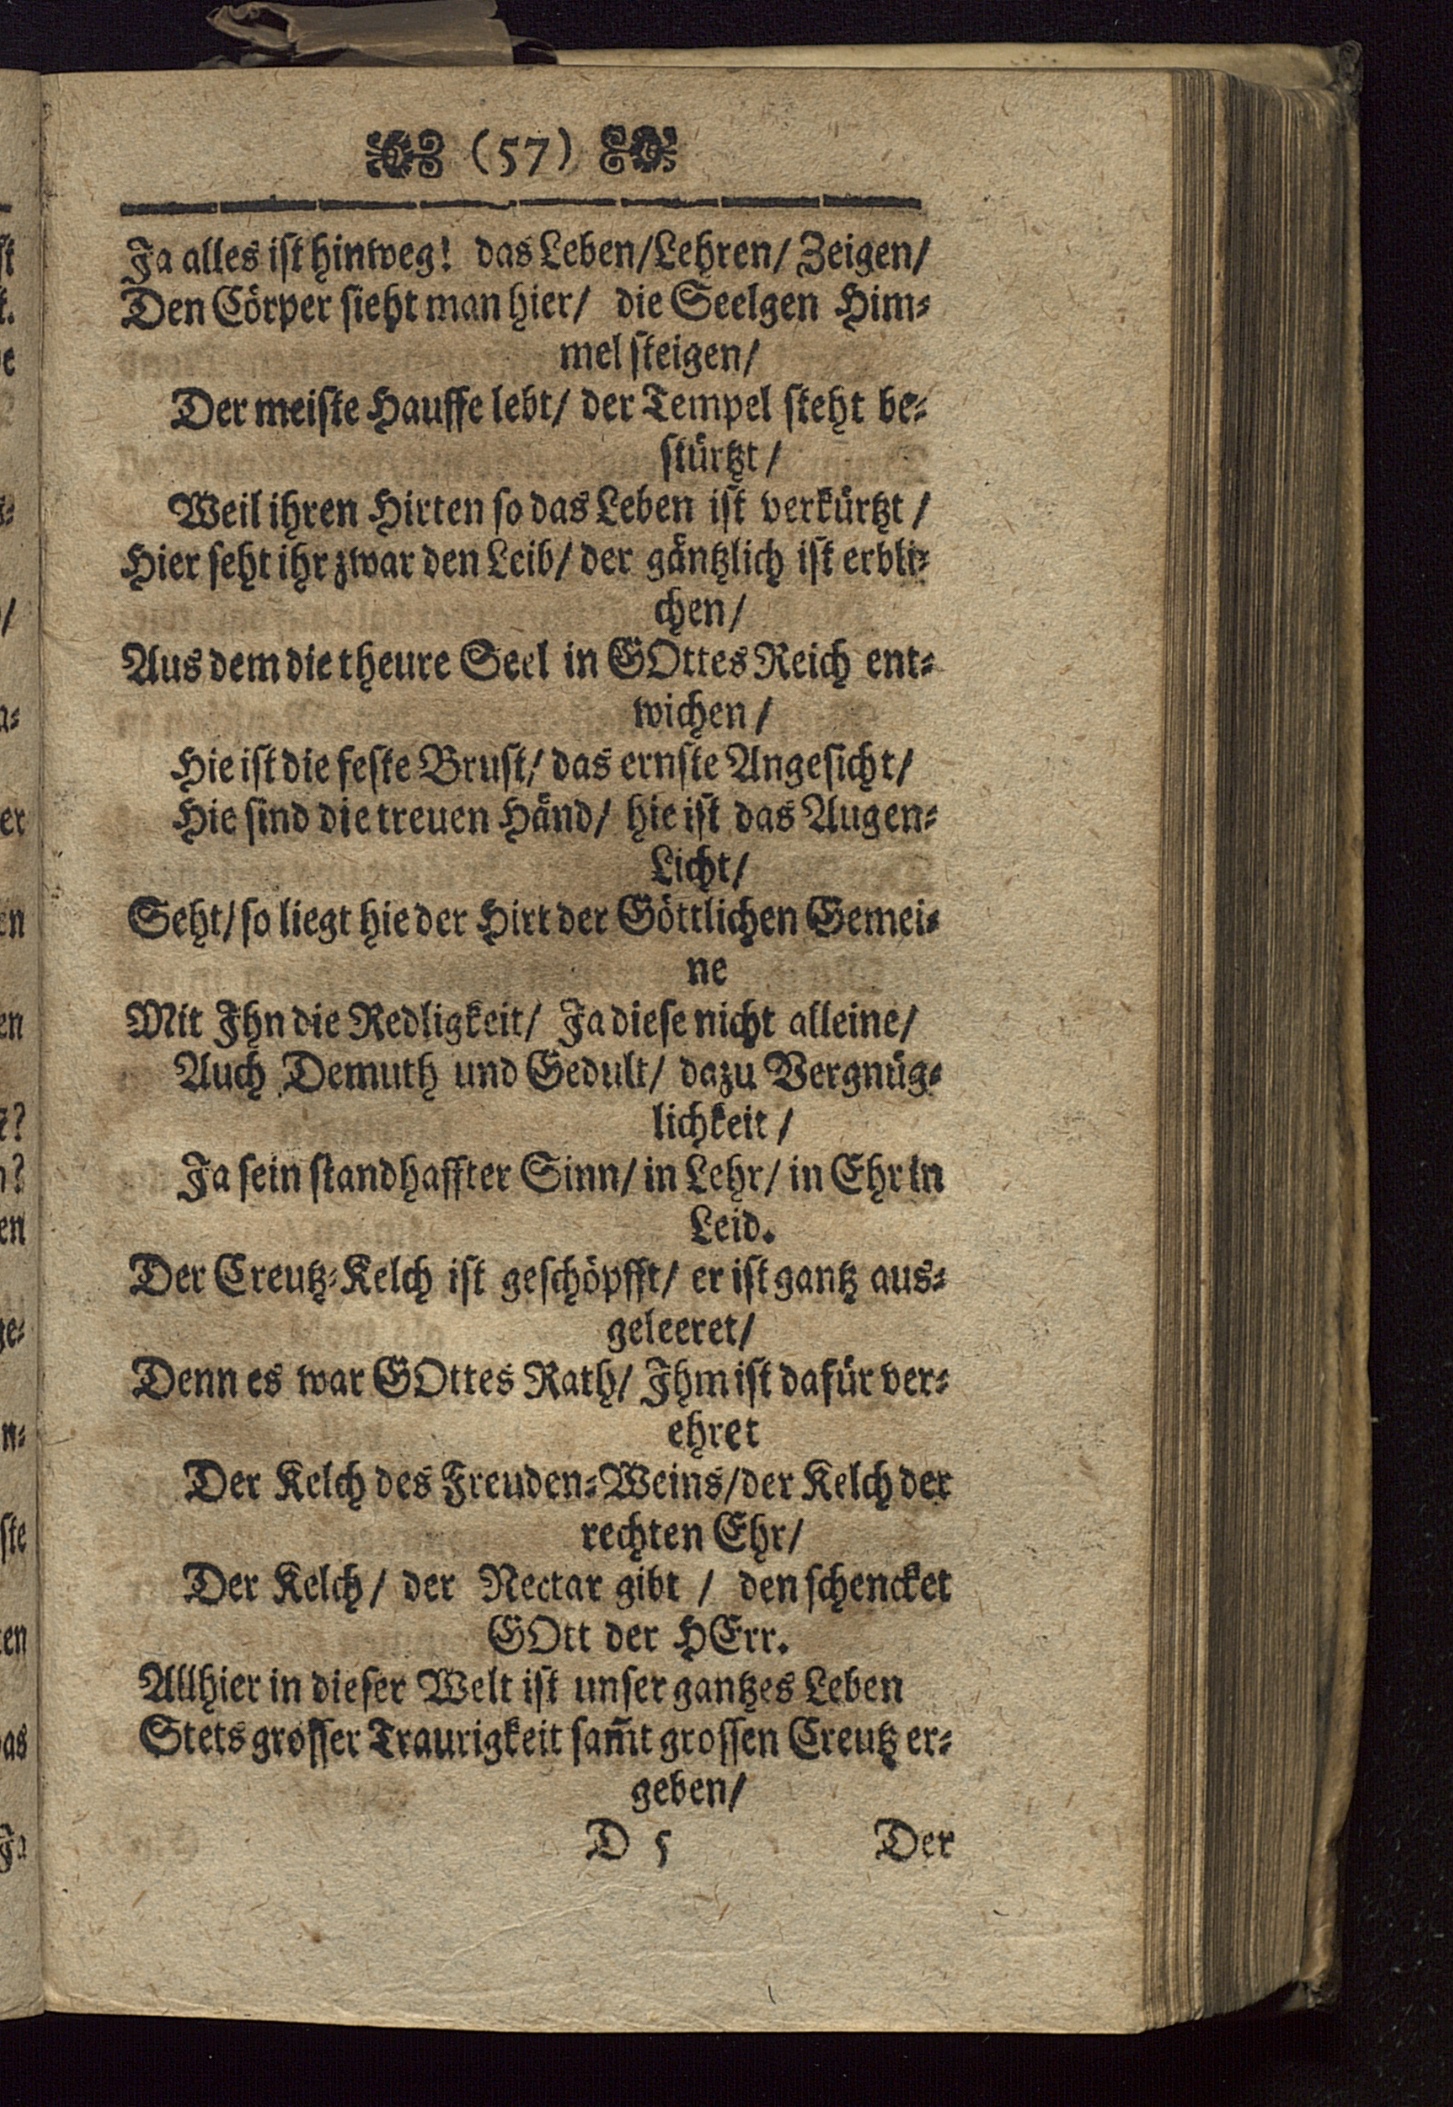 (57)
Ja alles ist hinweg! das Leben/Lehren/ Zeigen/
Den Cörper sieht man hier/ die Seelgen Him-
mel steigen/
Der meiste Hauffe lebt/ der Tempel steht be-
stürtzt/
Weil ihren Hirten so das Leben ist verkürtzt/
Hier seht ihr zwar den Leib/ der gäntzlich ist erbli-
chen/
Aus dem die theure Seel in GOttes Reich ent-
wichen/
Hie ist die feste Brust/ das ernste Angesicht/
Hie sind die treuen Händ/ hie ist das Augen-
Licht/
Seht/ so liegt hie der Hirt der Göttlichen Gemei-
ne
Mit Ihn die Redligkeit/ Ja diese nicht alleine/
Auch Demuth und Gedult/ dazu Vergnüg-
lichkeit/
Ja sein standhaffter Sinn/ in Lehr/ in Ehr in
Leid.
Der Creutz-Kelch ist geschöpfft/ er ist gantz aus-
geleeret/
Denn es war GOttes Rath/ Ihm ist dafür ver-
ehret
Der Kelch des Freuden-Weins/der Kelch der
rechten Ehr/
Der Kelch/ der Nectar gibt/ den schencket
GOtt der HErr.
Allhier in dieser Welt ist unser gantzes Leben
Stets grosser Traurigkeit sam̄t grossen Creutz er-
geben/
D 5 Der